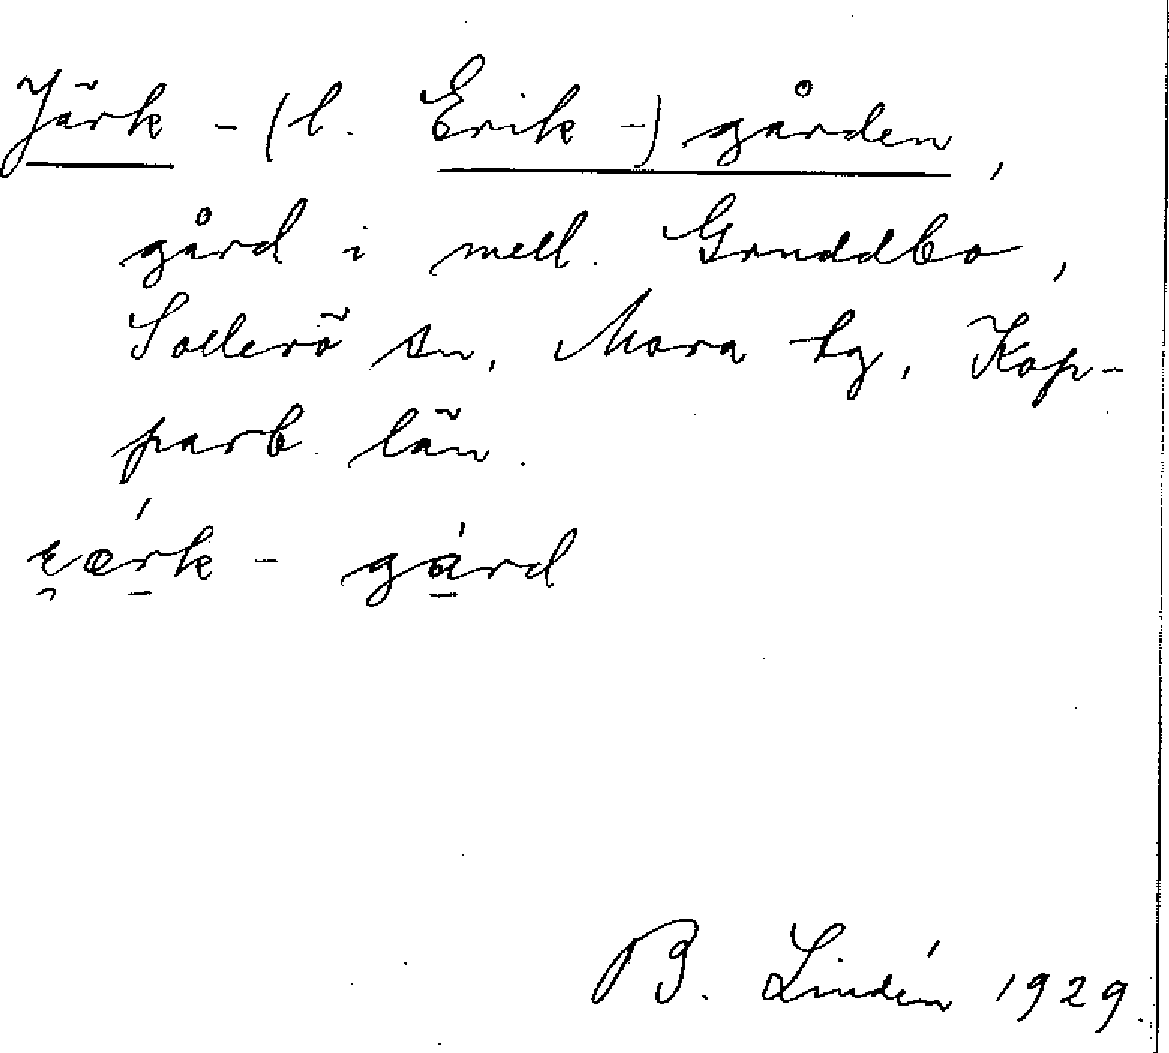 Järk - (l. Erik -) gården,
gård i mell. Gruddbo,
Sollerö sn, Mora tg, Kop-
parb. län.
- gård
B. Lindén 1929.